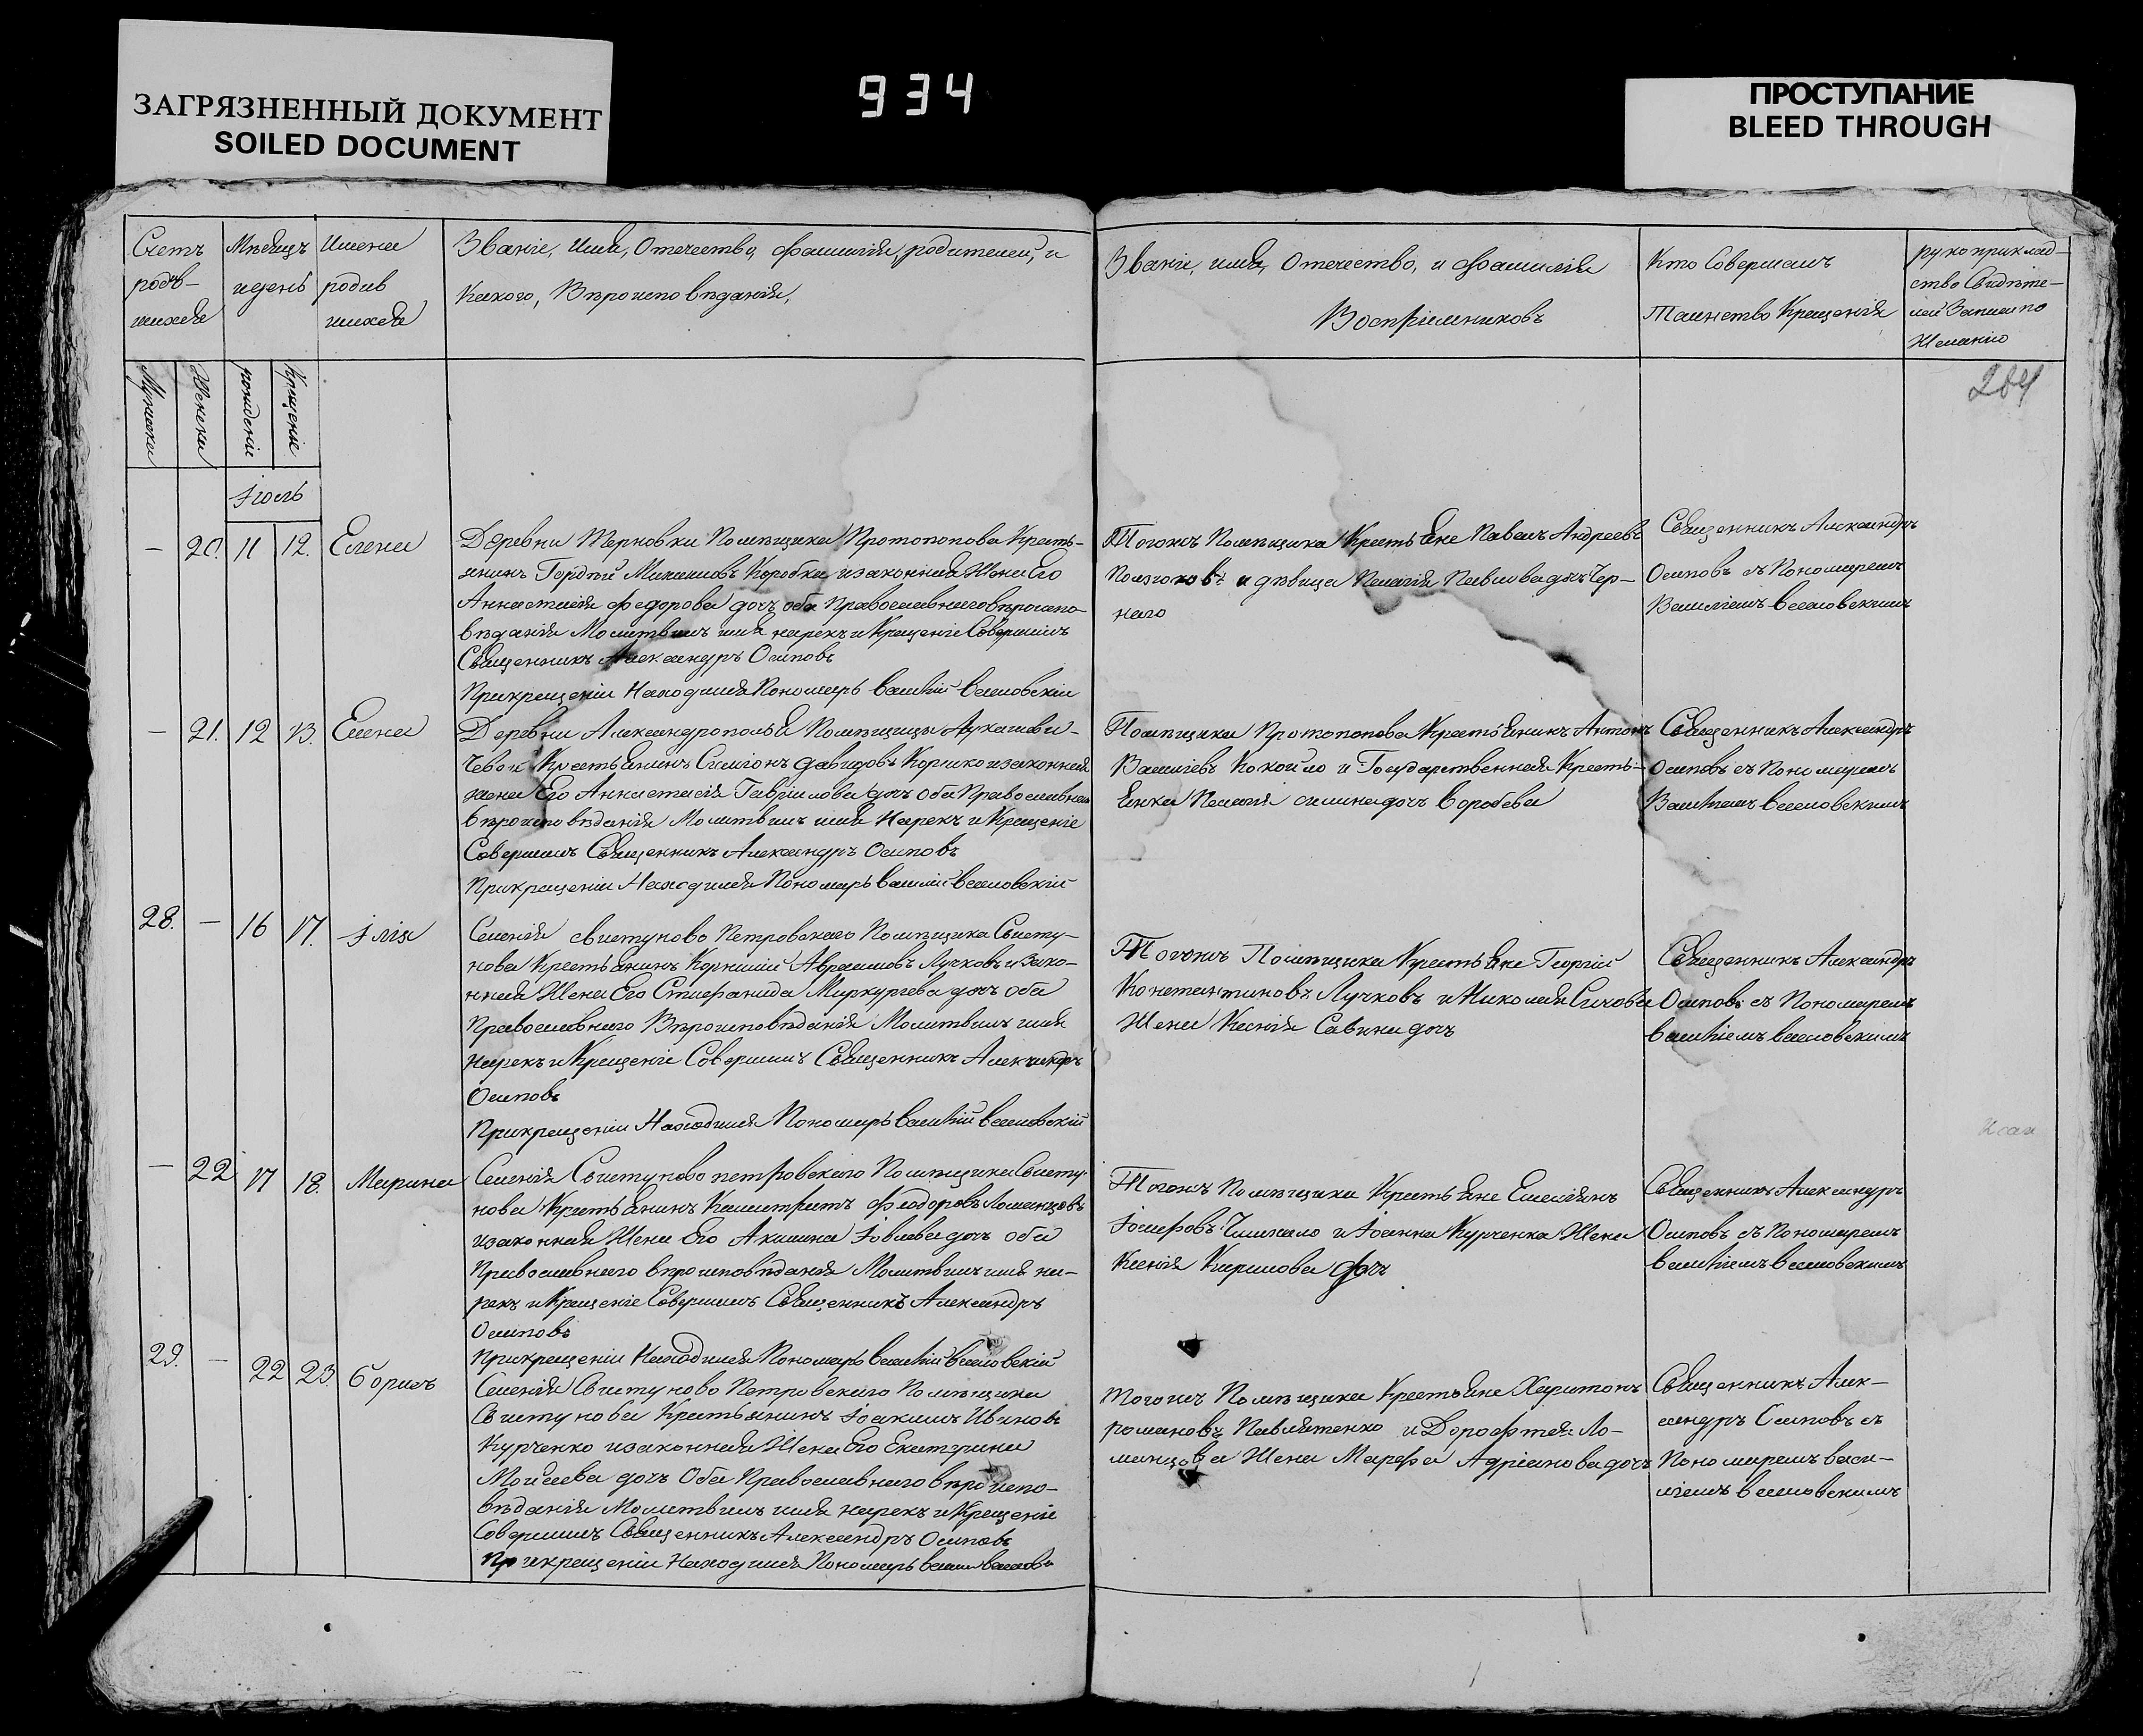 ЗАГРЯЗНЕННЫЙ ДОКУМЕНТ
SOILED DOCUMENT
934
ПРОСТУПАНИЕ
BLEED THROUGH
Счетъ родв-
шихся
Мѣсяцъ
и день
Имена
родив
шихся
Званіе, Имя, Отечество, Фамилія, родителей, и
Какого, Вѣроисповѣданія,
Званіе, имя, Отечество, и Фамилія
Воспріемниковъ
Кто Совершалъ
Таинство Крещенія
рукоприклад-
ство Свидѣте-
лей Записи по
Желанію
Мужескъ
Женскъ
рожденіе
Крещеніе
204
Іюль
— 20. 11 12. Елена
Деревни Терновки Помѣщика Протопопова Кресть-
янинъ Гордѣй Михаиловъ Коробка изаконная Жена Его
Анастасія Федорова дочь оба Православнаго вѣроиспо-
вѣданія Молитвилъ имя нарекъ и Крещеніе Совершилъ
Священникъ Александръ Осиповъ
Прикрещеніи Находился Пономарь василій веселовскій
Тогожъ Помѣщика Крестьяне Павелъ Андреевъ
и дѣвица Пелагія Павлова дочь Чер-
наго
Священникъ Александръ
Осиповъ съ Пономаремъ
Василіемъ веселовскимъ
— 21. 12 13. Елена
Деревни Александрополья Помѣщицы Лукашеви-
чевой Крестьянинъ Симіонъ Давидовъ Корнико изаконная
жена Его Анастасія Гавріилова дочь оба Православнаго
вѣроисповѣданія Молитвилъ имя Нарекъ и Крещеніе
Совершилъ Священникъ Александръ Осиповъ
Прикрещеніи Находился Пономарь василій веселовскій
Помѣщика Протопопова Крестьянинъ Антонъ
Василіевъ Кокойло и Государственная Кресть-
янка Пелагія силина дочь воробева
Священникъ Александръ
Осиповъ съ Пономаремъ
Василіемъ веселовскимъ
28. — 16 17. Ілія
Селенія свистуново Петровскаго Помѣщика Свисту-
нова Крестьянинъ Корнилій Авраамовъ Лучковъ и Зако-
нная Жена Его Стефанида Меркуріева дочь оба
Православнаго Вѣроисповѣданія Молитвилъ имя
Нарекъ и Крещеніе Совершилъ Священникъ Александръ
Осиповъ
Прикрещеніи Находился Пономарь василій веселовскій
Тогожъ Помѣщика Крестьяне Георгій
Константиновъ Лучковъ и Николая Сичова
Жена Ксенія Савина дочь
Священникъ Александръ
Осиповъ съ Пономаремъ
василіемъ веселовскимъ
— 22 17 18. Марина
Селенія Свистуново петровскаго Помѣщика Свисту-
нова Крестьянинъ Калистратъ Феодоровъ Ломанцовъ
изаконная Жена Его Акилина Іовлева дочь оба
Православнаго вѣроисповѣданія Молитвилъ имя на-
рекъ и Крещеніе Совершилъ Священникъ Александръ
Осиповъ
Прикрещеніи Находился Пономарь василій веселовскій
Тогожъ Помѣщика Крестьяне Емеліянъ
Іосифовъ и Іоанна Курченка Жена
Ксенія Кирилова дочь
Священникъ Александръ
Осиповъ съ Пономаремъ
василіемъ веселовскимъ
29. — 22 23. борисъ
Селенія Свистуново Петровскаго Помѣщика
Свистунова Крестьянинъ Іоакимъ Ивановъ
Курченко изаконная Жена Его Екатерина
Моисеева дочь Оба Православнаго вѣроиспо-
вѣданія Молитвилъ имя нарекъ и Крещеніе
Совершилъ Священникъ Александръ Осиповъ
Прикрещеніи Находился Пономарь
Тогожъ Помѣщика Крестьяне Харитонъ
романовъ Павлятенко и Дорофтея Ло-
манцова Жена Марфа Адріанова дочь
Священникъ Алек-
сандръ Осиповъ съ
Пономаремъ васи-
ліемъ веселовскимъ